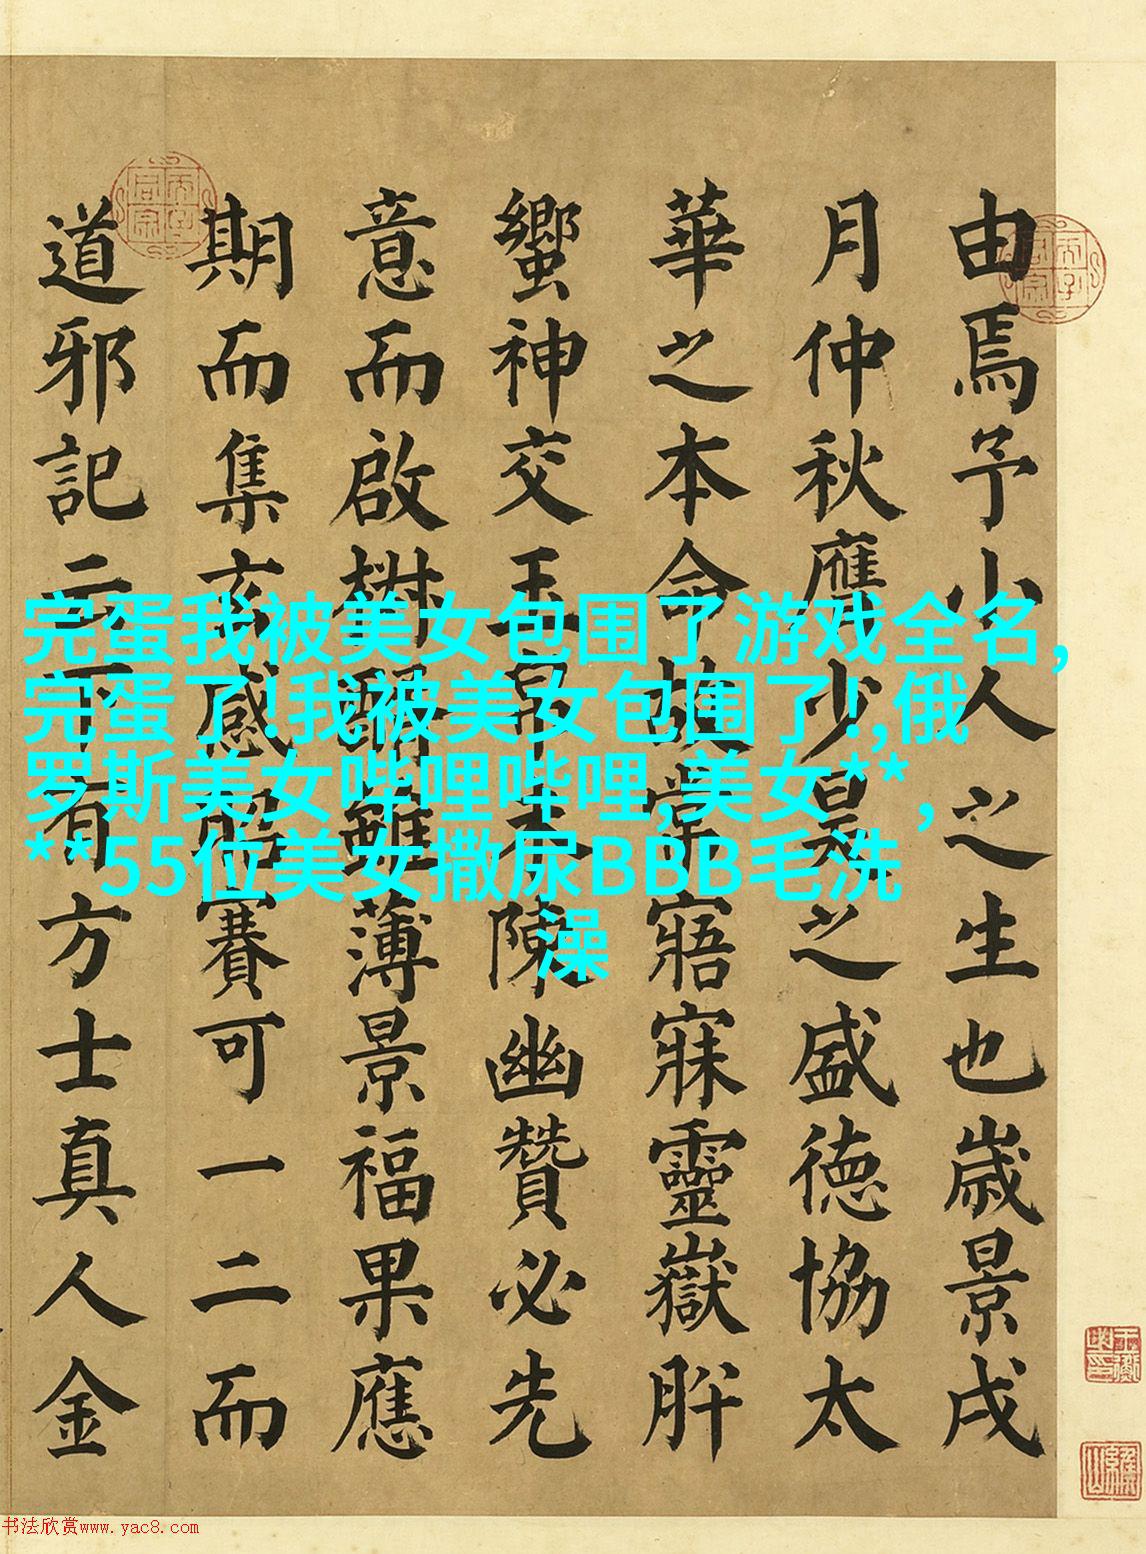 由焉予小人之生也歲景戌
月仲秋膺少昊之盛德協太
華之本命故常寤寐靈嶽肸
蠁神交玉帛未陳幽贊必先
意而啟椒醑雖薄景福果應
期而集玄感昭賽可一二而
道邪記云下有方士真人金
完蛋我被美女包围了游戏全名,
完蛋了!我被美女包围了!,俄
罗斯美女哔哩哔哩,美女**,
**55位美女撒尿BBB毛洗
澡
书法欣赏www.yac8.com